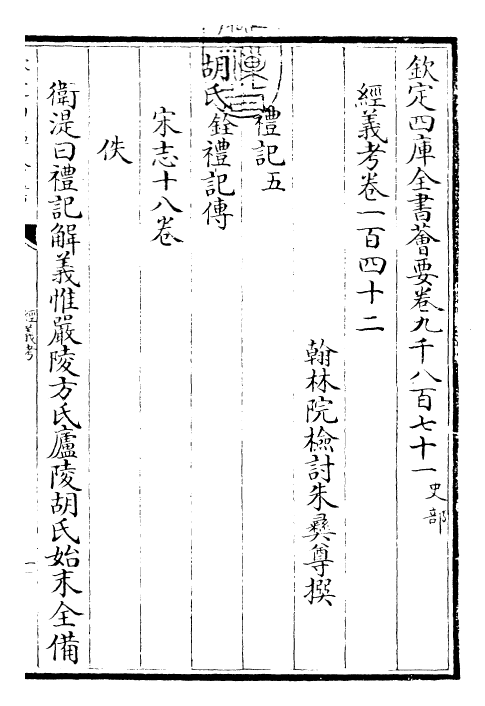 欽定四庫全書薈要卷九千八百七十一史部
經義考卷一百四十二
翰林院檢討朱彝尊撰
禮記五
胡氏銓禮記傳
宋志十八卷
佚
衛湜曰禮記解義惟嚴陵方氏廬陵胡氏始末全備
經義考